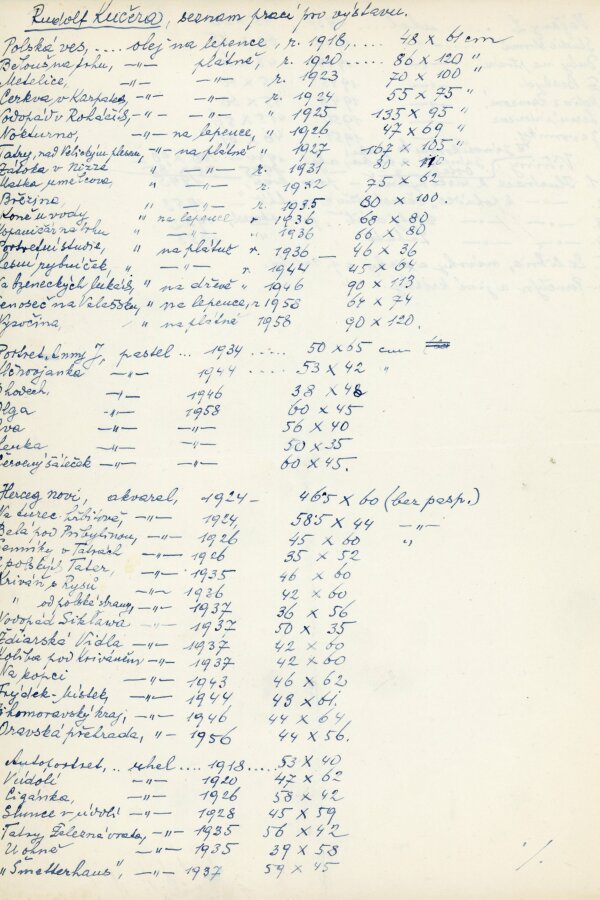 Rudolf Kučera, seznam prací pro výstavu.
Polská ves, .... olej na lepence, r. 1918, .... 48 x 61 cm
na trhu, -"- plátně, r. 1920 ..... 86 x 120 "
Metelice, -"- -"- r. 1923 70 x 100 "
Cerkva v Karpatech, -"- -"- r. 1924 55 x 75 "
Vodopád v Roháčích, -"- -"- " 1925 135 x 95 "
Nokturno, -"- na lepence, " 1926 47 x 69 "
Tatry, nad Velickým plesem, -"- na plátně " 1927 167 x 105 "
Zátoka v Nizza " -"- r. 1931 80 x
Matka umělcova, " -"- r. 1932 75 x 62
Březina, " -"- r. 1935 80 x 100.
Koně u vody " na lepence r. 1936 68 x 80
na trhu " -"- " 1936 66 x 80
Portretní studie, " na plátně r. 1936 — 46 x 36
Lesní rybníček, " -"- r. 1944 45 x 64
luk " na dřevě " 1946 90 x 113
Senoseč na Valašsku, " na lepence, r 1958 64 x 74
Vysočina, " na plátně 1958 90 x 120.
Portret Anny J., pastel ... 1934 ..... 50 x 65 cm
-"- 1944 ..... 53 x 42 "
-"- 1946 38 x 48
Olga -"- 1958 60 x 45
Eva -"- -"- 56 x 40
Lenka -"- -"- 50 x 35
Červený šáteček -"- -"- 60 x 45.
Herceg novi, akvarel, 1924 - 465 x 60 (bez pasp.)
Na -"- 1924, 585 x 44 -"-
Belá pod Pribylinou, -"- 1926 45 x 60 "
v Tatrách -"- 1926 35 x 52
Z polských Tater, -"- 1935 46 x 60
Kriváň s Rysů -"- 1936 42 x 60
" od polské strany, -"- 1937 36 x 56
Vodopád Siklawa -"- 1937 50 x 35
Ždiarská Vidla -"- 1937 42 x 60
Koliba pod Kriváněm -"- 1937 42 x 60
Na kopci -"- 1943 46 x 62
Frýdek-Místek, -"- 1944 43 x 61.
Jihomoravský kraj, -"- 1946 44 x 64
Oravská přehrada, " 1956 44 x 56.
Autoportret, .. uhel .... 1918 ..... 53 x 40
V údolí -"- 1920 47 x 62
Cigánka, -"- 1926 58 x 42
Slunce v údolí -"- 1928 45 x 59
Tatry Železná vrata, -"- 1935 56 x 42
U ohně -"- 1935 39 x 53
"Šmetterhaus", -"- 1937 59 x 45